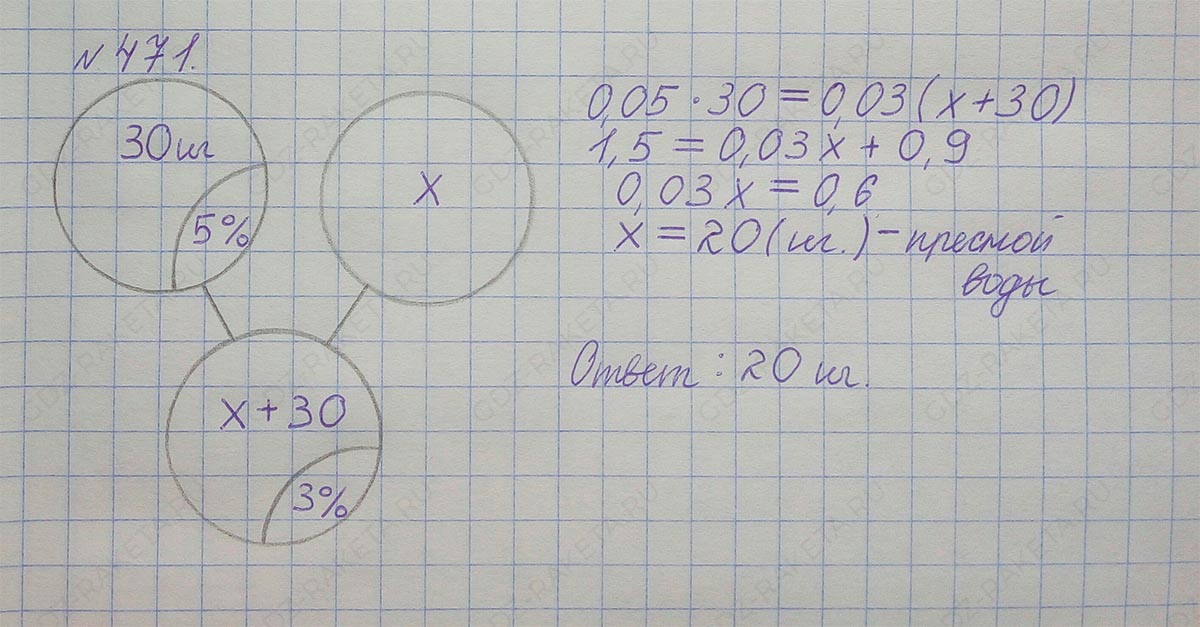 N 471.
30 кг
5%
x
x + 30
3%
0,05 · 30 = 0,03 (x + 30)
1,5 = 0,03 x + 0,9
0,03 x = 0,6
x = 20 (кг.) – пресной
воды
Ответ: 20 кг.
GDZ-RAKETA.RU